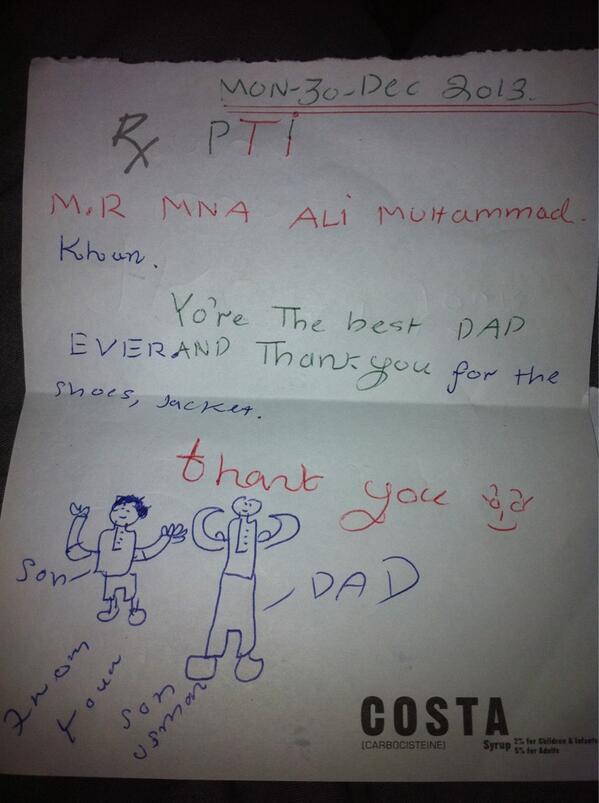 MON-30-Dec 2013.
Rx PTI
M.R MNA ALI MUHammad.
Khan.
Yo're The best DAD
EVER AND Thank you for the
shoes, Jacket.
thank you
son
DAD
From
your
son
usman
COSTA
(CARBOCISTEINE)
Syrup 2% for Children & Infants
5% for Adults